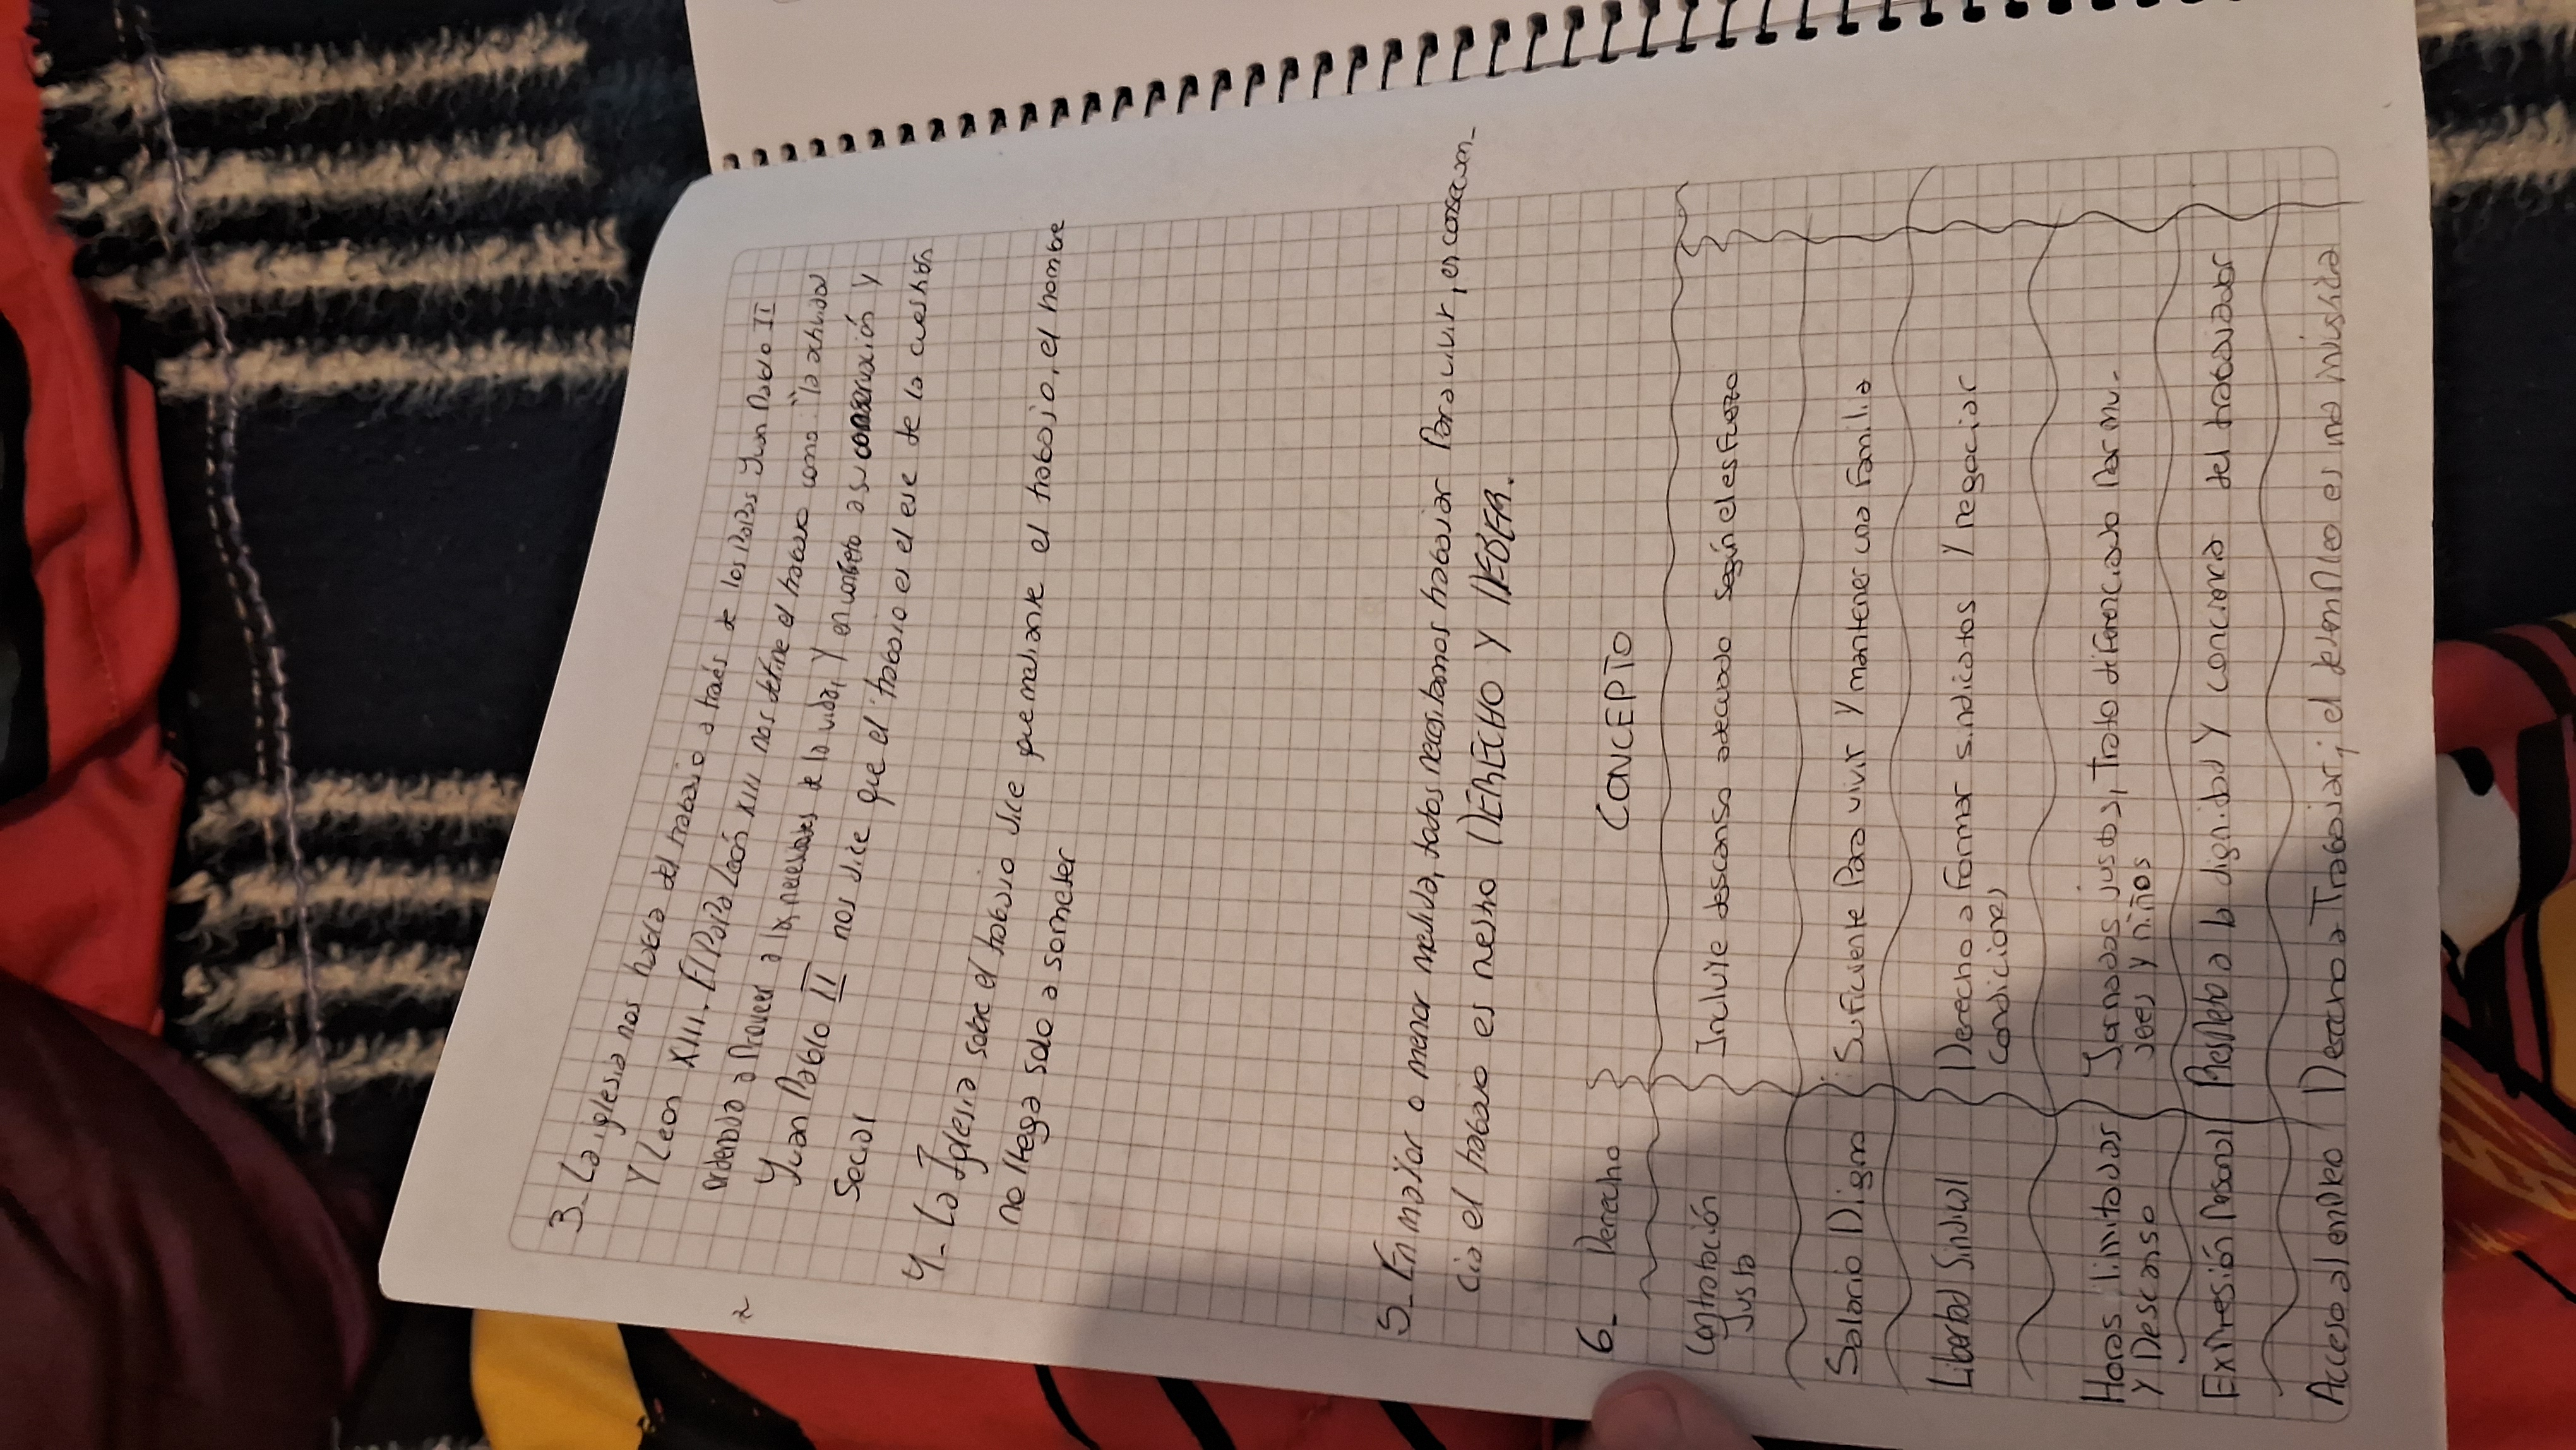 3_ La iglesia nos habla del trabajo a través de los Papas Juan Pablo II
Y Leon XIII. El Papa León XIII nos define el trabajo como "la actividad
ordenada a Proveer a las necesidades de la vida, y en concreto a su conservación y
Juan Pablo II nos dice que el trabajo es el eje de la cuestión
Social
4_ La Iglesia sobre el trabajo dice que mediante el trabajo, el hombre
no llega solo a someter
5_ En mayor o menor medida, todos necesitamos trabajar Para vivir, en consecuen_
cia el trabajo es nestro DERECHO Y DEBER.
6_ Derecho CONCEPTO
Contratación Justa Incluye descanso adecuado según el esfuerzo
Salario Digno Suficiente Para vivir Y mantener una familia
Libertad Sindical Derecho a formar sindicatos Y negociar
condiciones
Horas limitadas Jornadas justas, Trato diferenciado Por mu-
Y Descanso jeres y niños
Expresión Personal Respeto a la dignidad Y conciencia del trabajador
Acceso al empleo Derecho a Trabajar; el desempleo es una injusticia
2